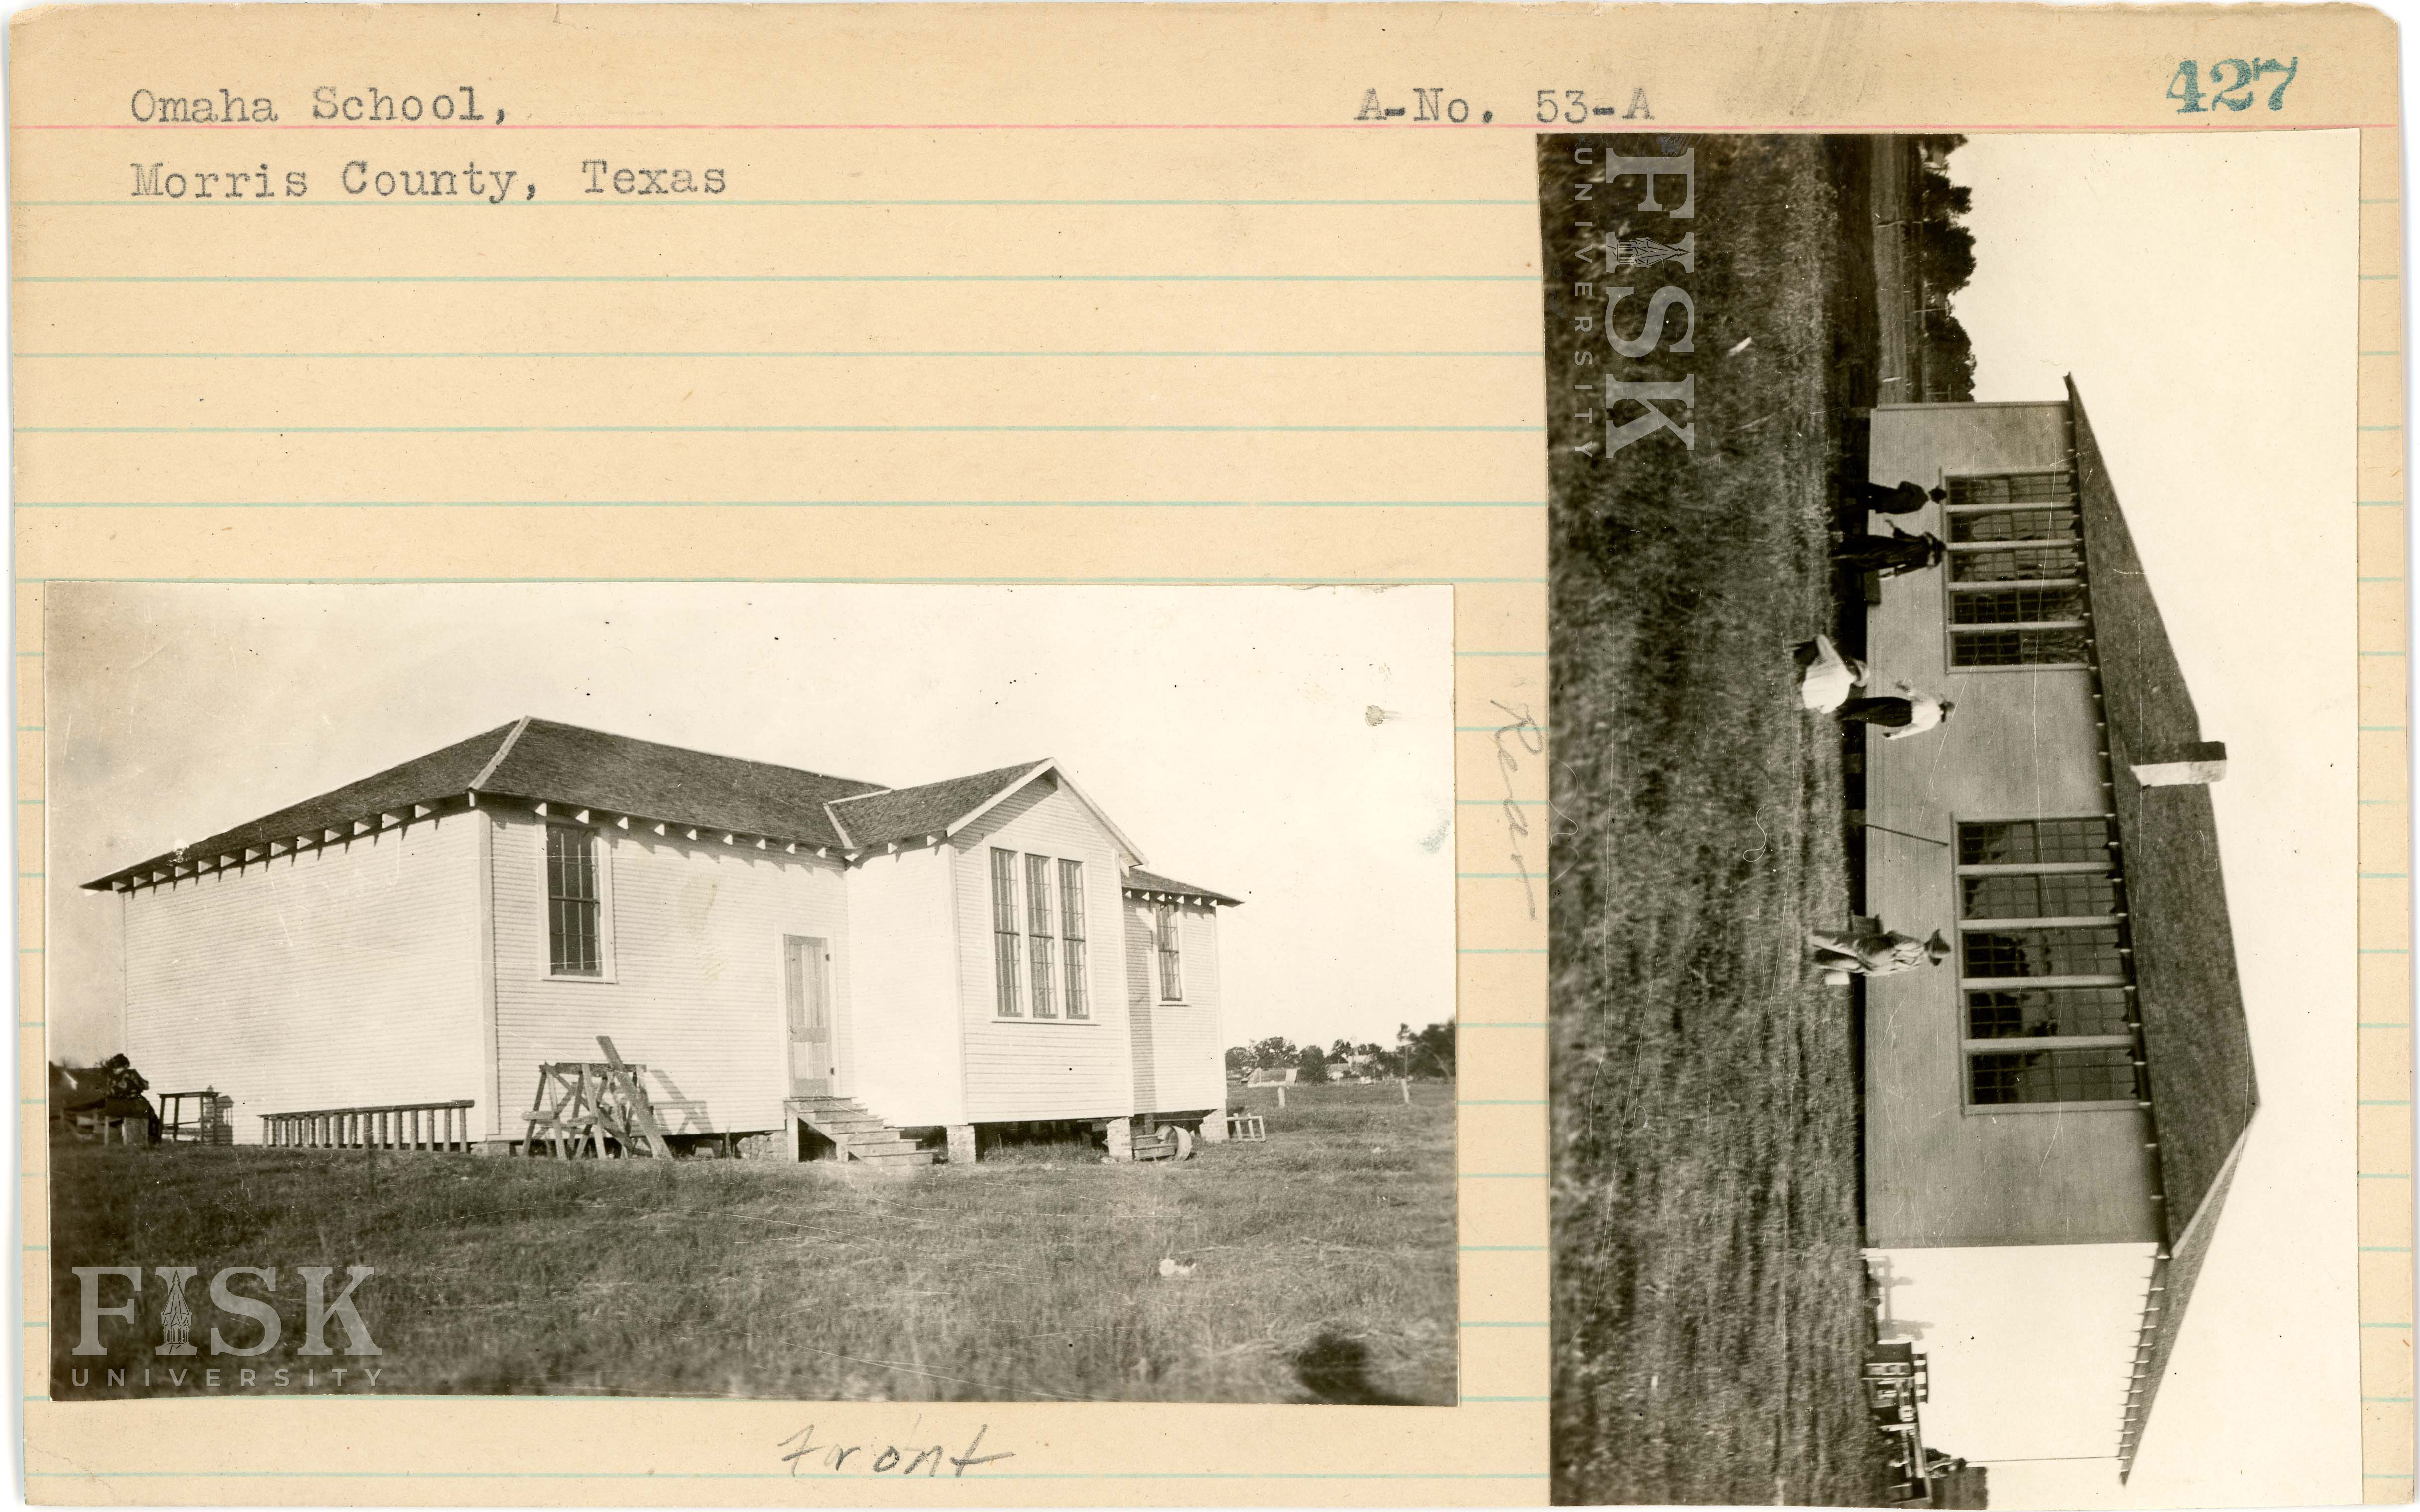 Omaha School,
A-No. 53-A
427
Morris County, Texas
Rear
Front
FISK
UNIVERSITY
FISK
UNIVERSITY